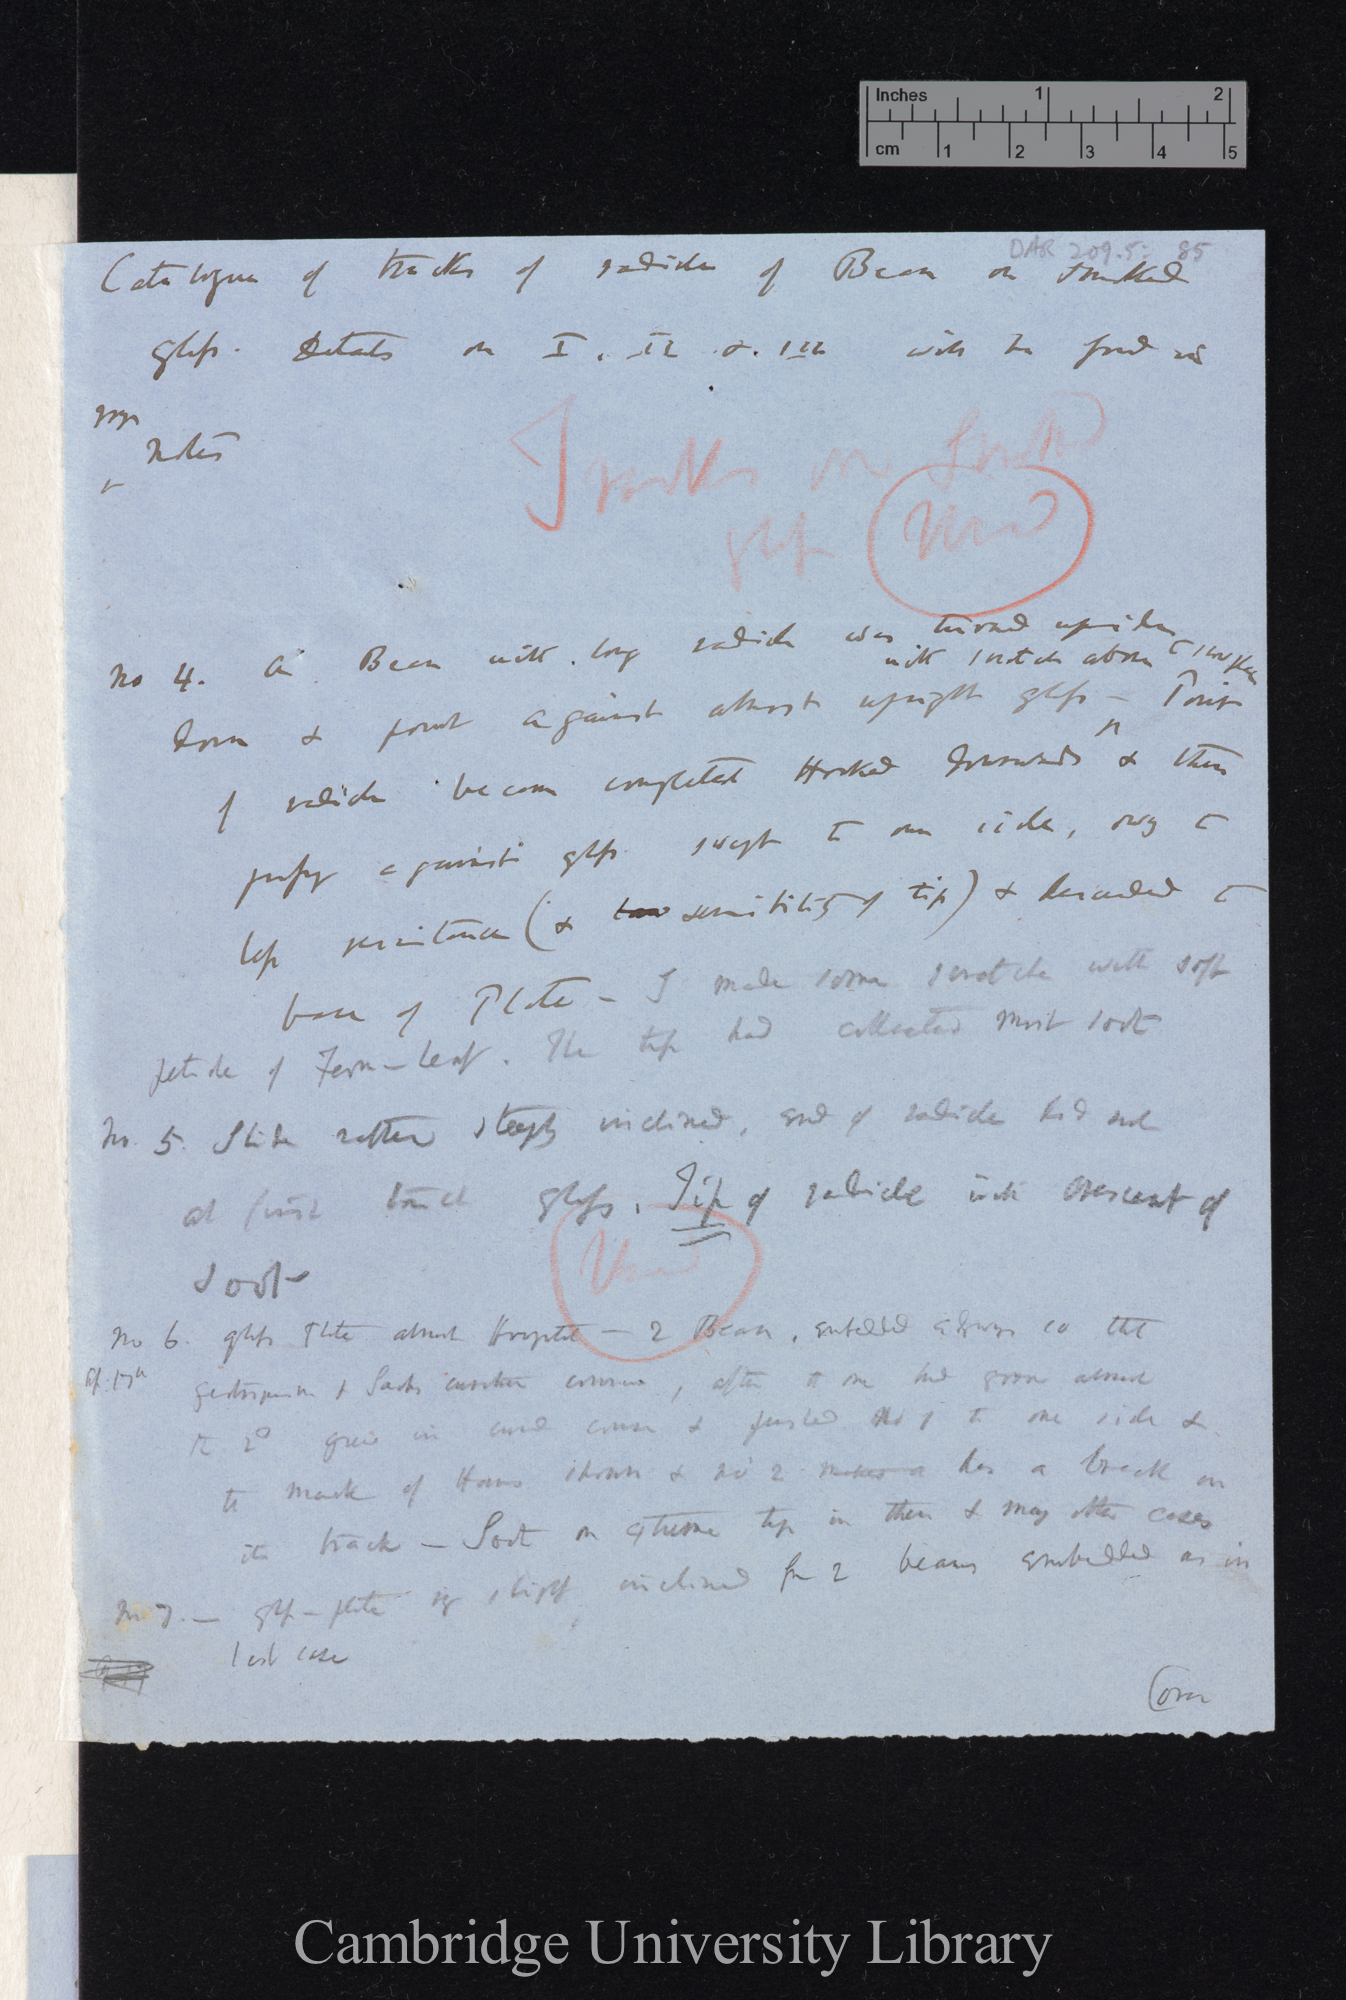 Inches 1 2
cm 1 2 3 4 5
DAR 209.5: 85
Catalogue of tracks of radicles of Bean on smoked
glass. Details on I, II & III will be found in
notes
Tracks on Smoked
glass Used
No 4. A Bean with long radicle was turned upside
with scratch above
down & point against almost upright glass — Point
of radicle became completed Hooked downwards & then
pressing against glass swept to one side, owing to
less resistance (& sensibility of tip) & descended to
base of Plate — I made some scratches with soft
petiole of Fern-leaf. The tip had collected most soot
No. 5. Slide rather steeply inclined, end of radicle did not
at first touch glass. Tip of radicle with crescent of
soot
Used
No 6. glass Plate almost — 2 Beans, embedded so that
geotropism & Sachs curvature, after the one had grown almost
the 2d grew in curved course & pushed No 1 to one side &
the mark of shown & no 2 has a break in
its track — Soot on extreme tip in these & many other cases
No 7. — glass-plate slightly inclined for 2 beans embedded as in
last case
(over
Cambridge University Library